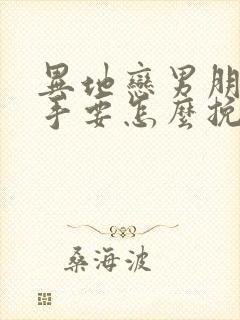 異地戀男朋
手要怎麼挽
桑海波